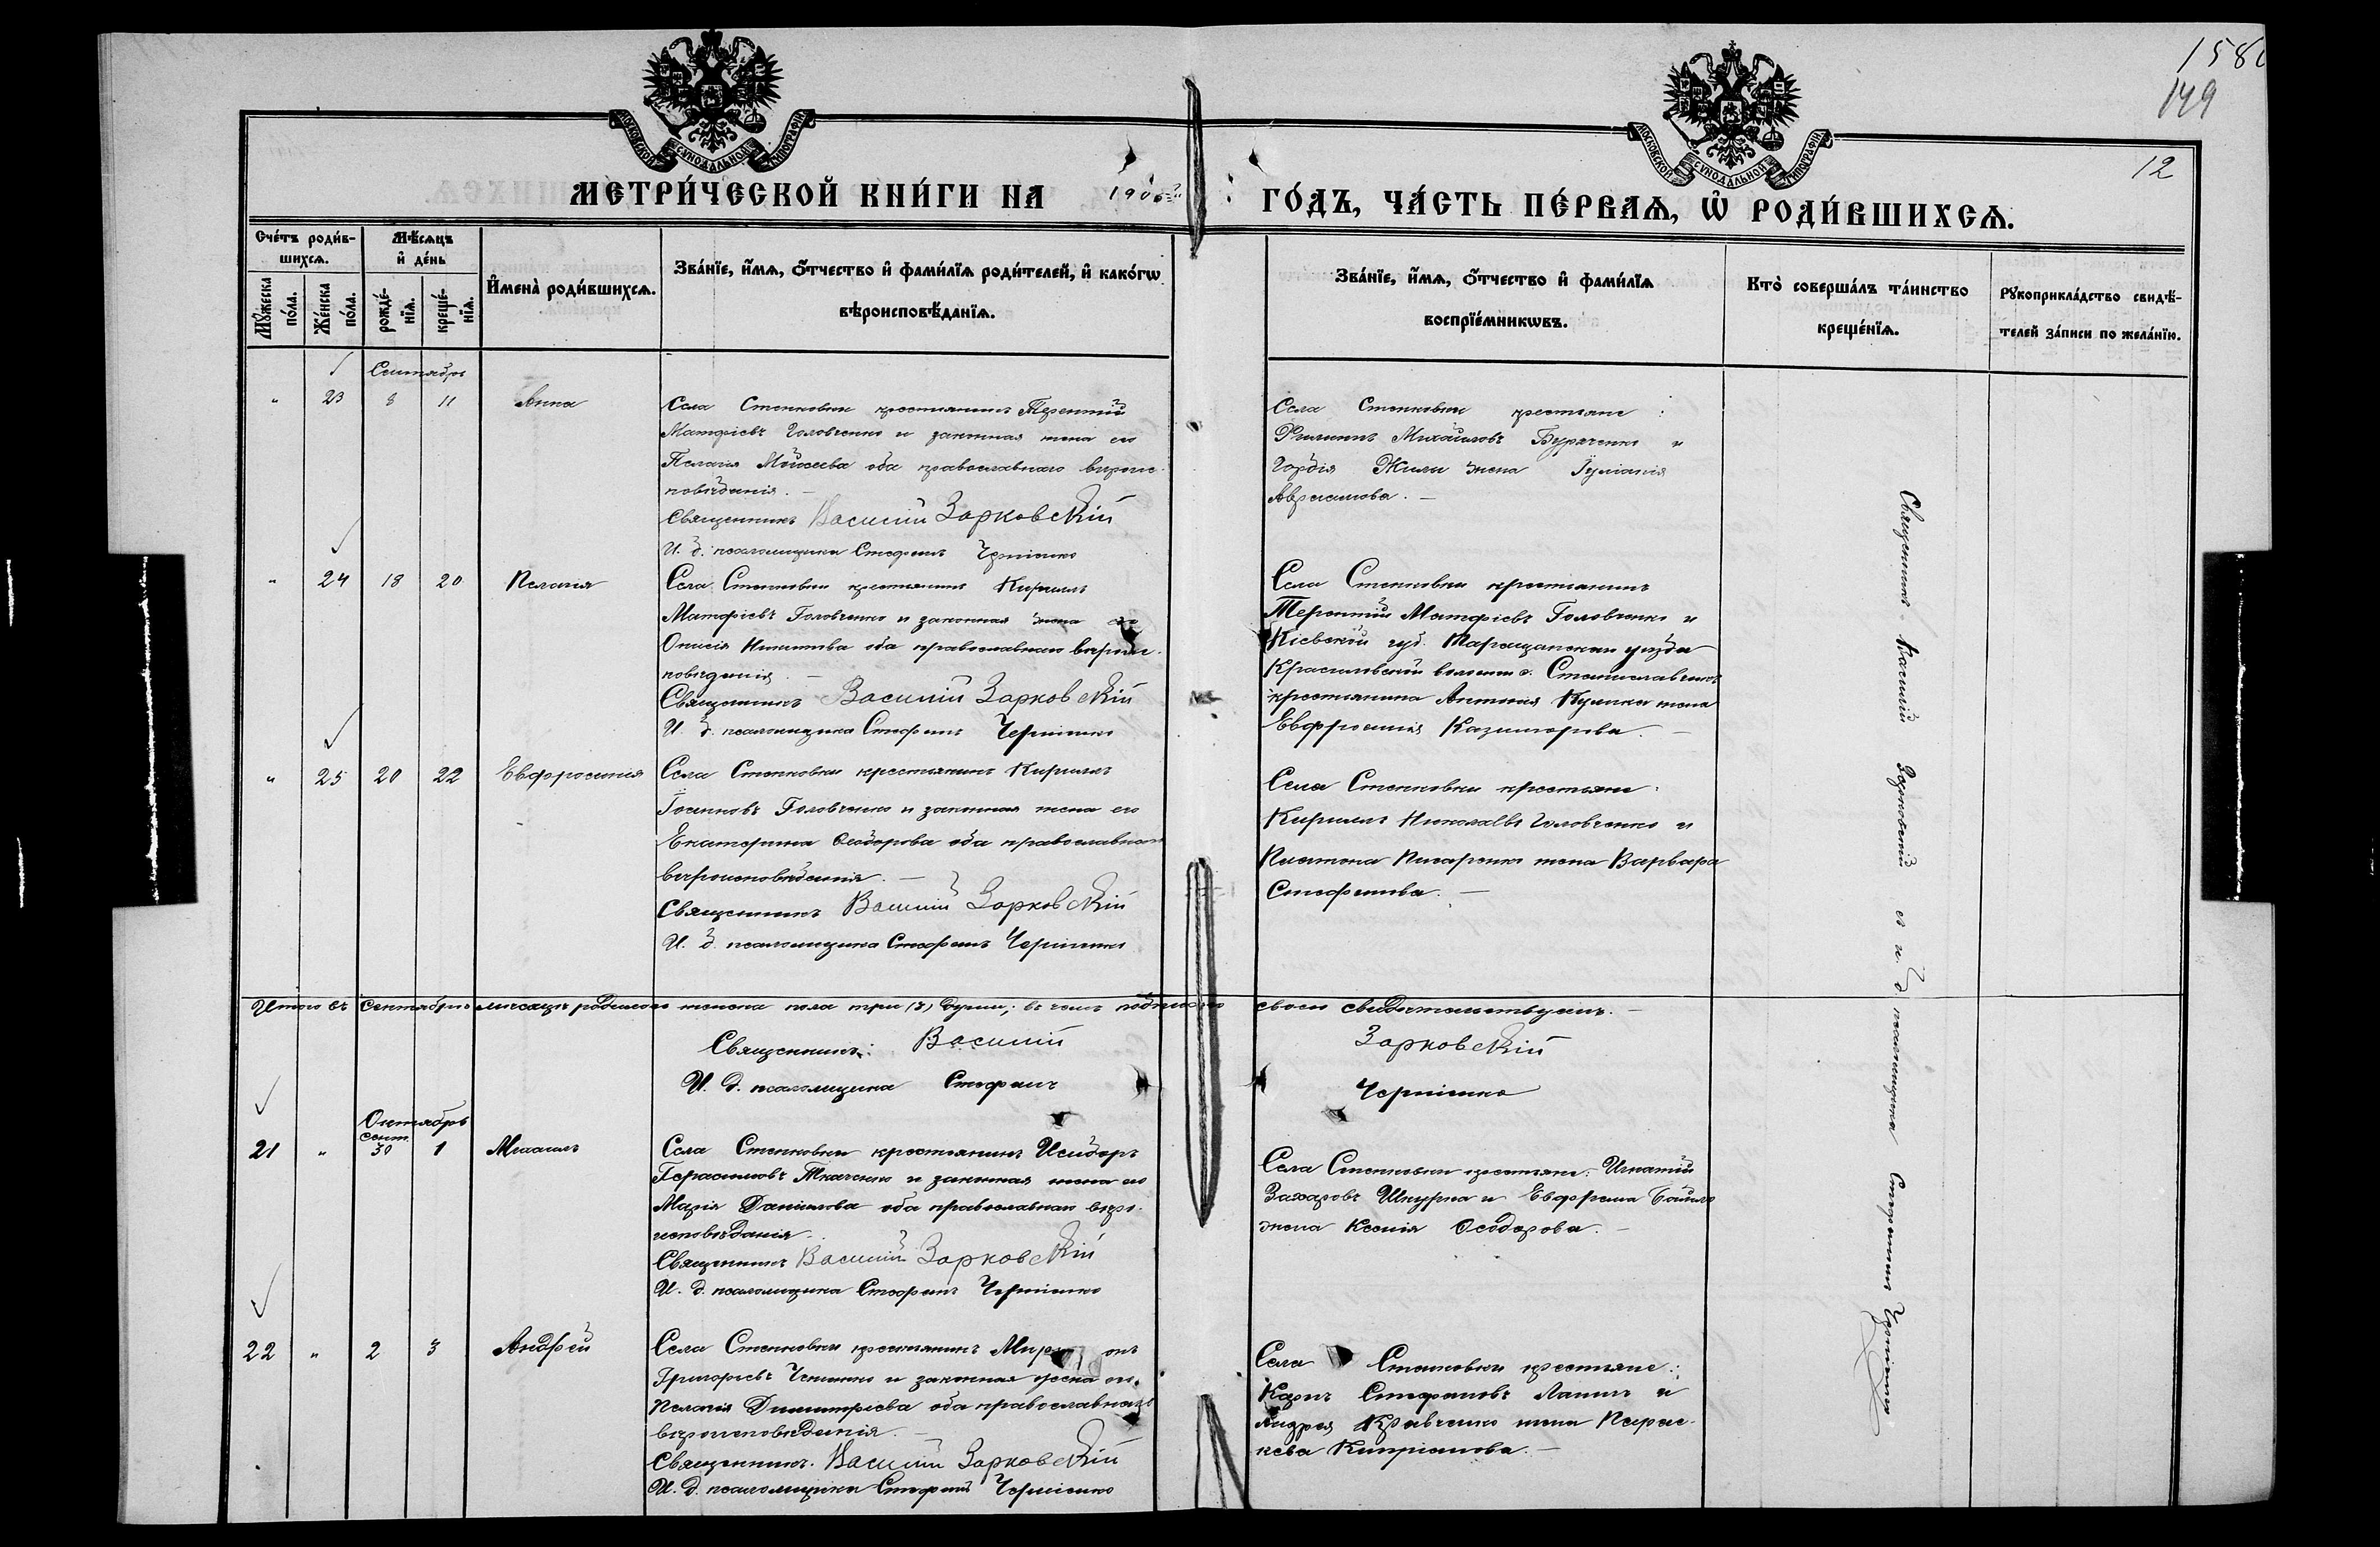 1586
149
12
МОСКОВСКОЙ СѴНОДАЛЬНОЙ ТИПОГРАФІИ
МОСКОВСКОЙ СѴНОДАЛЬНОЙ ТИПОГРАФІИ
МЕТРИ́ЧЕСКОЙ КНИ́ГИ НА 1906 ГО́ДЪ, ЧА́СТЬ ПЕ́РВАѦ, Ѡ҆ РОДИ́ВШИХСѦ.
Сче́тъ роди́в-
шихсѧ.
Мѣ́сѧцъ
и҆ де́нь
Мꙋ́жеска по́ла.
Же́нска по́ла.
рожде́-
нїѧ.
креще́-
нїѧ.
И҆мена̀ роди́вшихсѧ.
Зва́нїе, и҆́мѧ, ѻ҆́тчество и҆ фами́лїѧ роди́телей, и҆ како́гѡ
вѣроисповѣ́данїѧ.
Зва́нїе, и҆́мѧ, ѻ҆́тчество и҆ фами́лїѧ
воспрїе́мникѡвъ.
Кто̀ соверша́лъ та́инство
креще́нїѧ.
Рꙋкоприкла́дство свидѣ́-
телей за́писи по жела́нїю.
Сентябрь
" 23 8 11 Анна
Села Степковки крестьянинъ Терентій
Матфіевъ Головченко и законная жена его
Пелагія Моисеева оба православнаго вѣроис-
повѣданія. —
Священникъ Василій Зарковскій
И. д. псаломщика Стефанъ Черніенко
Села Степковки крестьяне:
Филиппъ Михайловъ Буряченко и
Гордія Жилы жена Іуліанія
Авраамова. —
" 24 18 20 Пелагія
Села Степковки крестьянинъ Кириллъ
Матфіевъ Головченко и законная жена его
Онисія Никитова оба православнаго вѣроис-
повѣданія. —
Священникъ Василій Зарковскій
И. д. псаломщика Стефанъ Черніенко
Села Степковки крестьянинъ
Терентій Матфіевъ Головченко и
Кіевской губ. Таращанскаго уѣзда
волости с. Станиславчика
крестьянина Антонія Кулика жена
Евфросинія Казимирова. —
" 25 20 22 Евфросинія
Села Степковки крестьянинъ Кириллъ
Іосифовъ Головченко и законная жена его
Екатерина Ѳеодорова оба православнаго
вѣроисповѣданія. —
Священникъ Василій Зарковскій
И. д. псаломщика Стефанъ Черніенко
Села Степковки крестьяне:
Кириллъ Николаевъ Головченко и
Платона Писаренка жена Варвара
Стефанова. —
Итого въ сентябрѣ мѣсяцѣ родилось женска пола три (3) души; въ чемъ подписью своею свидѣтельствуемъ. —
Священникъ: Василій Зарковскій
И. д. псаломщика Стефанъ Черніенко
Октябрь
21 " сент. 30 1 Михаилъ
Села Степковки крестьянинъ Исидоръ
Герасимовъ Ткаченко и законная жена его
Марія Даніилова оба православнаго вѣро-
исповѣданія.
Священникъ Василій Зарковскій
И. д. псаломщика Стефанъ Черніенко
Села Степковки крестьяне: Игнатій
Захаровъ Шкурка и Евфрема
жена Ксенія Ѳеодорова. —
22 " 2 3 Андрей
Села Степковки крестьянинъ Миронъ
Григорьевъ и законная жена его
Пелагія Димитріева оба православнаго
вѣроисповѣданія. —
Священникъ. Василій Зарковскій
И. д. псаломщика Стефанъ Черніенко
Села Степковки крестьяне:
Карпъ Стефановъ и
Андрея Кравченко жена Парас-
кева Кипріанова. —
Священникъ Василій Зарковскій съ и. д. псаломщика Стефаномъ Черніенко